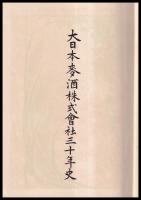 大日本麥酒株式會社三十年史